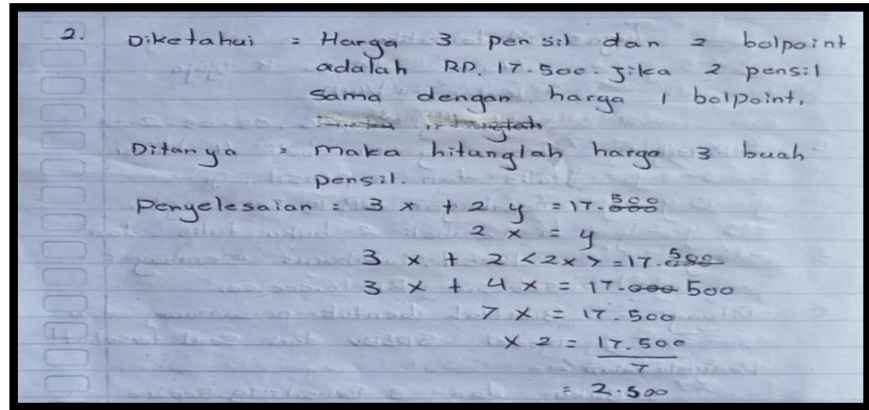 2. Diketahui = Harga 3 pensil dan 2 bolpoint
adalah RP. 17.500. Jika 2 pensil
sama dengan harga 1 bolpoint,
Ditanya = maka hitanglah harga 3 buah
pensil.
Penyelesaian = 3x + 2y = 17.500
2x = y
3x + 2<2x> = 17.500
3x + 4x = 17.000 500
7x = 17.500
x 2 = 17.500
7
= 2.500